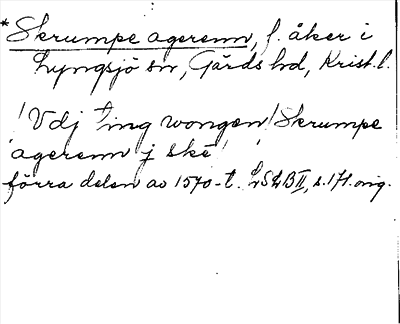 *Skrumpe agerenn, f. åker i
Lyngsjö sn, Gärds hd, Krist. l.
! Vdj Ting wongen / Skrumpe
agerenn j ske !
förra delen av 1570-t. LSLB II, s. 171. orig.